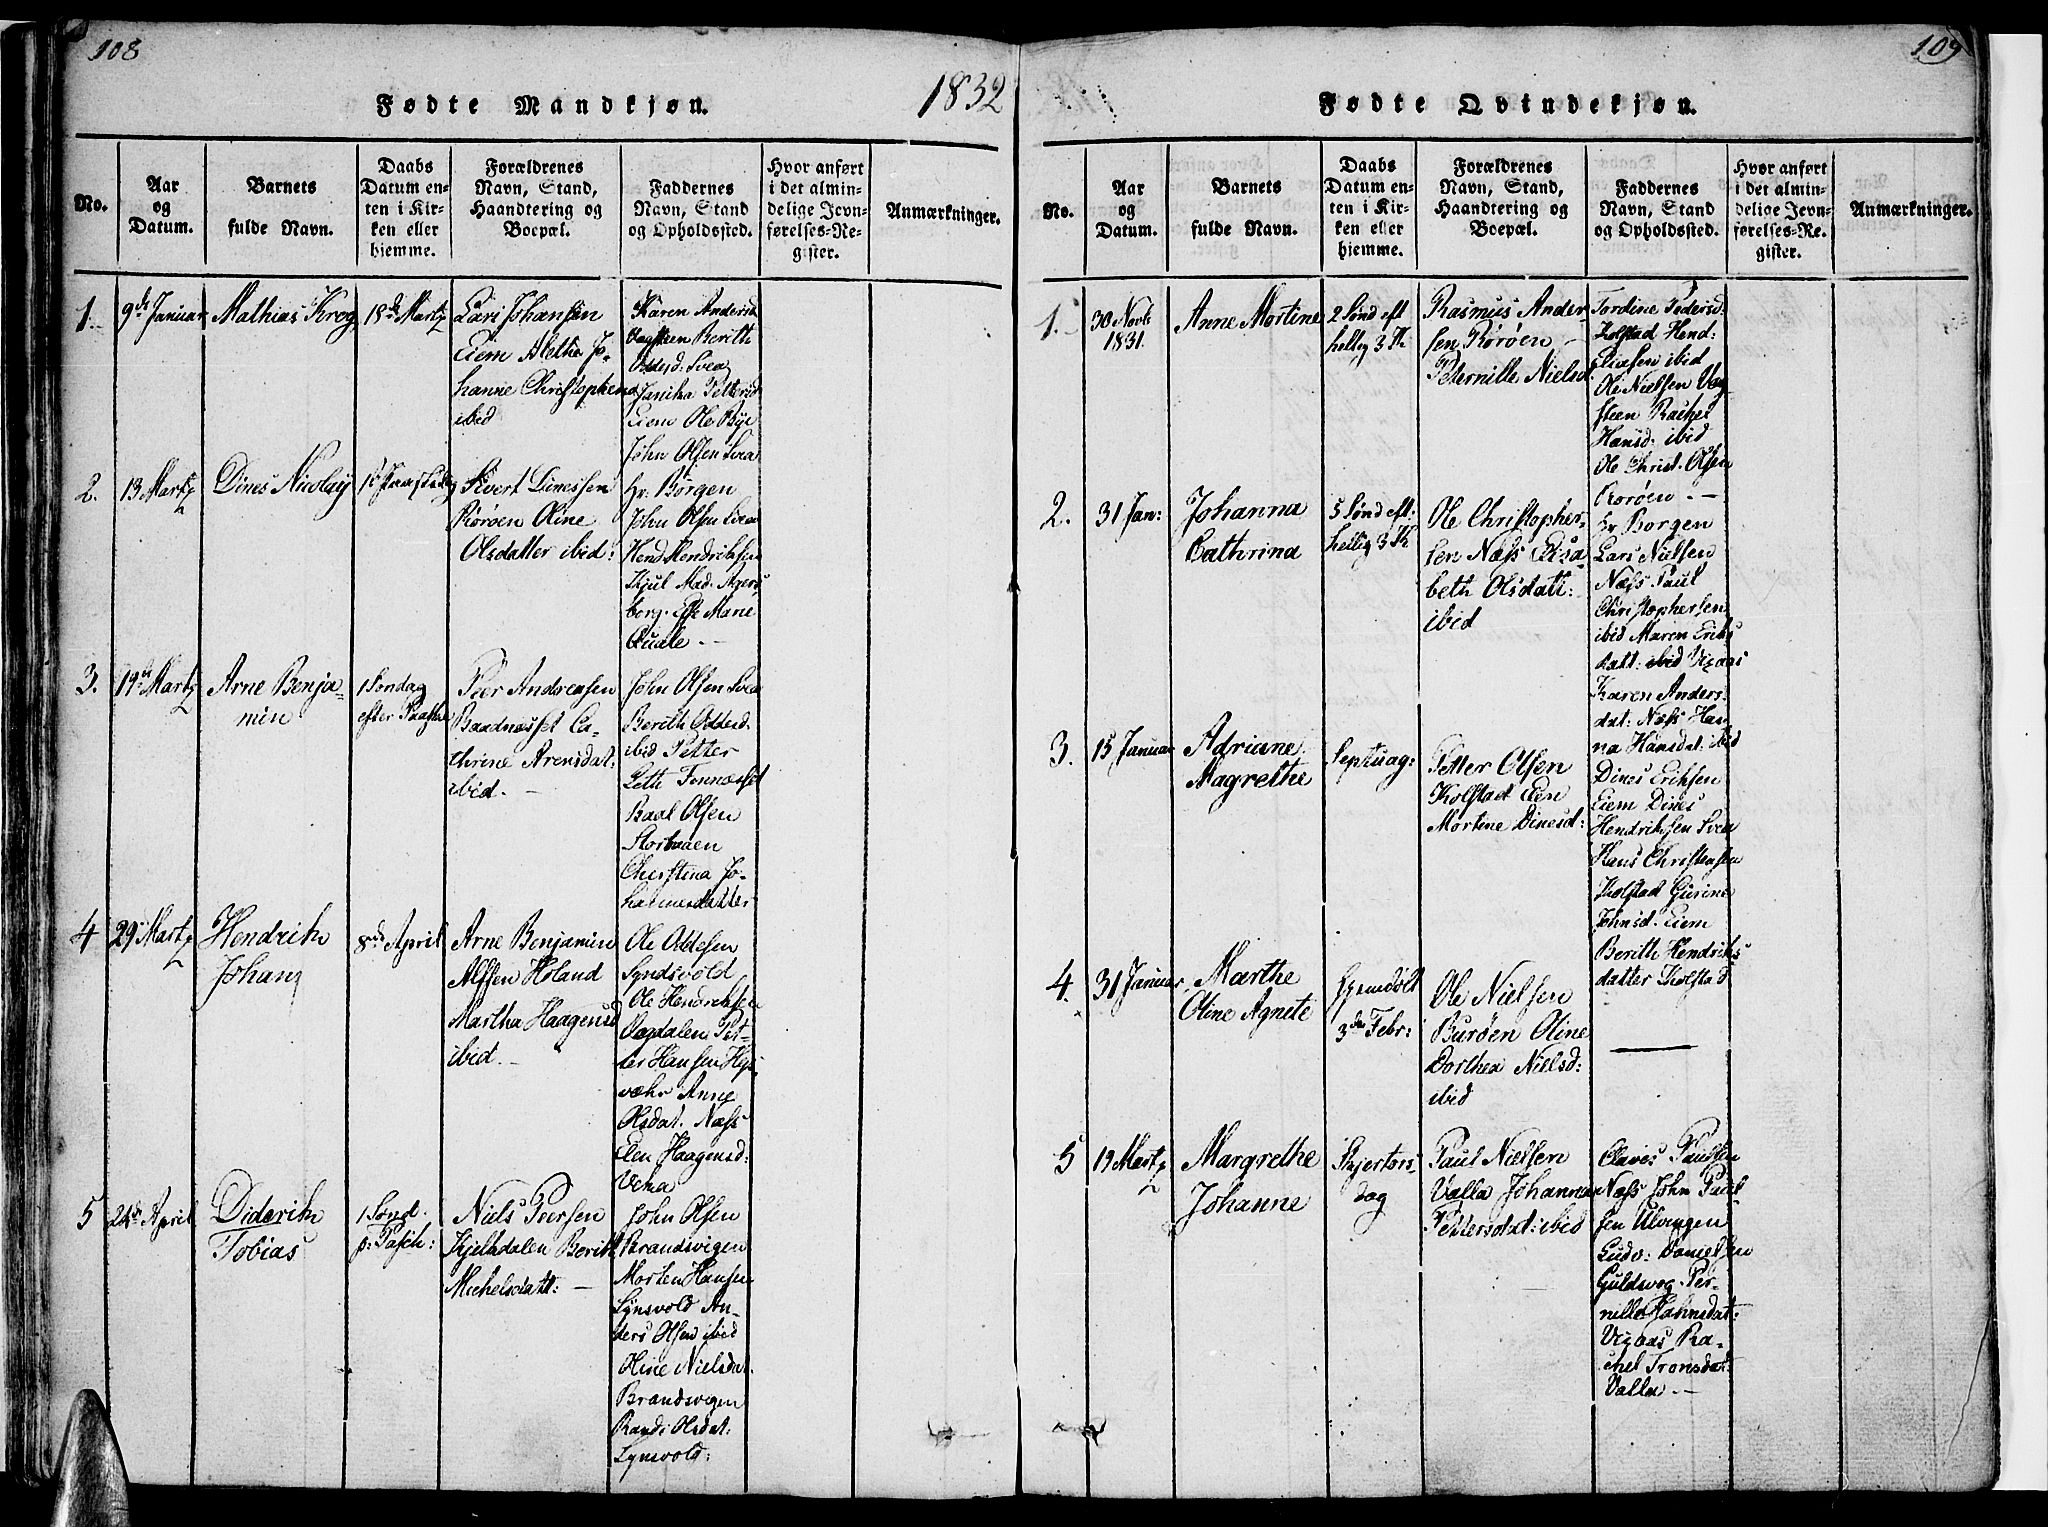 108
1832
Fødte Mandkjøn.
No.
Aar
og
Datum.
Barnets
fulde Navn.
Daabs
Datum en-
ten i Kir-
ken eller
hjemme.
Forældrenes
Navn, Stand,
Haandtering og
Boepæl.
Faddernes
Navn, Stand
og Opholdssted.
Hvor anført
i det almin-
delige Jevn-
førelses-Re-
gister.
Anmærkninger.
1.
9de Januar
Mathias Krog
18de Martz
Lars Johansen
Eiem Alethe Jo-
hanne Christophersd
ibid
Karen Andersd
Vagsteen Berith
Oddesd: Svea
Janika Pettersd
Eiem Ole Bye
John Olsen Svea
2.
13 Martz
Dines Nicolay
1ste Paaskedag
Sivert Dinessen
Rorøen Oline
Olsdatter ibid:
Hr: Borgen
John Olsen Svea
Hend Hendriksen
Mad. Agers
borg. Else Marie
Quale. —
3.
19de Martz
Arne Benja-
min
1 Søndag
efter Paaske
Peer Andreasen
Baadnesset Ca-
thrine Arensdat:
ibid. —
John Olsen Svea
Berith Oddesd.
ibid Petter
Leth Finnæset
Baal Olsen
Stormoen
Christina Jo-
hannesdatter
4
29 Martz
Hendrik
Johan
8de April
Arne Benjamin
Alfsen Høland
Martha Haagensd
ibid —
Ole Oddesen
Syndsvold
Ole Hendrichsen
Dagdalen Pet-
ter Hansen Høy
væhr Anne
Olsdat. Næss
Elen Haagensd:
5
24de April
Diderik
Tobias
1. Sønd.
p: Pasch:
Niels Peersen
Kjeldalen Berith
Michelsdatt: —
John Olsen
Brandsvigen
Morten Hansen
Synsvold An-
ders Olsen ibid
Oline Nielsdat.
Brandsvigen
Randi Olsdat:
Synsvold:
109
Fødte Qvindekjøn.
No.
Aar
og
Datum.
Barnets
fulde Navn.
Daabs
Datum en-
ten i Kir-
ken eller
hjemme.
Forældrenes
Navn, Stand,
Haandtering og
Boepæl.
Faddernes
Navn, Stand
og Opholdssted.
Hvor anført
i det almin-
delige Jevn-
førelses-Re-
gister.
Anmærkninger.
1.
30 Novb
1831.
Anne Mortine
2 Sønd eft
hellig 3 K
Rasmus Ander-
sen Rorøen —
Peternille Nielsd
Tordine Pedersd:
Kolstad Hend:
Eliasen ibid
Ole Nielsen Vag
steen Rachel
Hansd: ibid
Ole Christ. Olsen
Rorøen. —
2.
31 Jan:
Johanna
Cathrina
5 Sønd eft:
hellig 3 K
Ole Christopher-
sen Næss Elisa-
beth Olsdatt:
ibid
Hr Borgen
Lars Nielsen
Næss Paul
Christophersen
ibid Maren Eriks
datt: ibid Vigaas
Karen Anders-
dat: Næss Han
na Hansdat: ibid
3.
15 Januar
Adriane
Magrethe
Septuag:
Petter Olsen
Kolstad Elen
Mortine Dinesd:
Dines Eriksen
Eiem Dines
Hendriksen Svea
Hans Christensen
Kolstad Gurine
Johnsd. Eiem
Berith Hendriks
datter Kolstad
4.
31 Januar
Marthe
Oline Agnete
3de Febr:
Ole Nielsen
Burøen Oline
Dorthea Nielsd:
ibid
—
5
19 Martz
Margrethe
Johanne
Skjertors
dag
Paul Nielsen
Valla Johanna
Pettersdat: ibid
Claves Paulsen
Næss John Paul
sen Ulvingen
Ludv: Danielsen
Guldsvog. Per-
nille Hahnsdat:
Vigaas Ra-
chel Tronsdat:
Valla. —